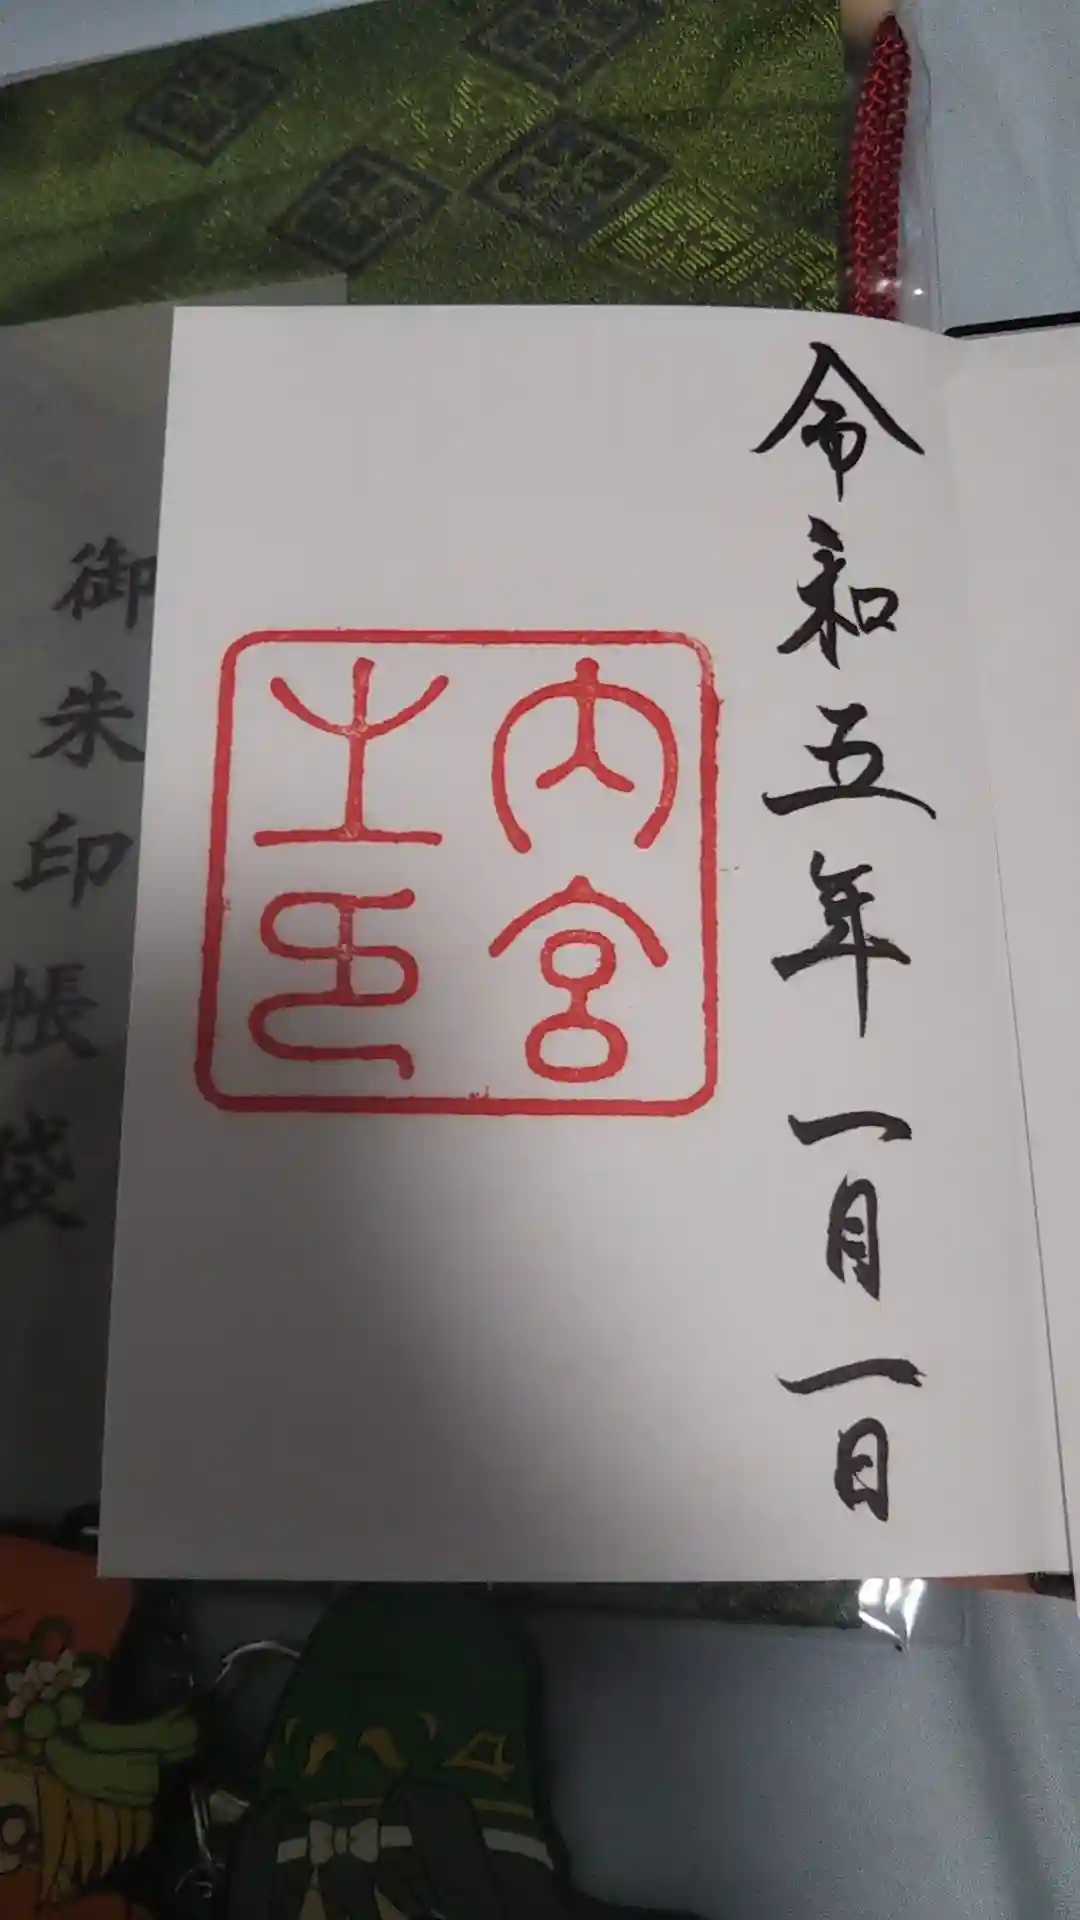 令和五年一月一日
内宮
之印
御朱印帳袋